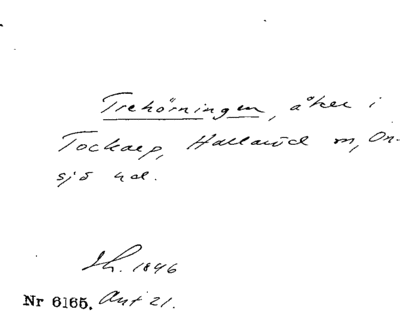 Trehörningen, åker i
Tockarp, Hallaröd sn, On-
sjö hd.
Sk. 1846
Nr 6165. Ant 21.